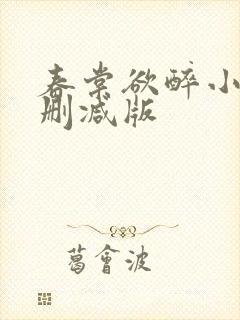 春棠欲醉小
删减版
葛會波